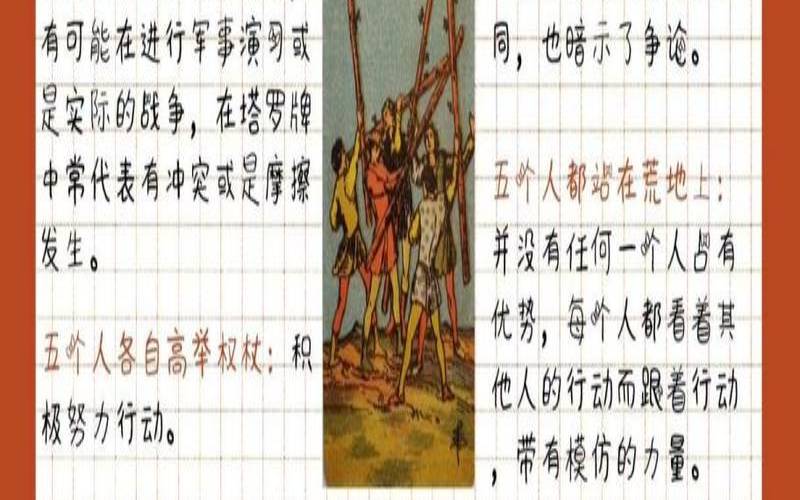 有可能在进行军事演习或
是实际的战争，在塔罗牌
中常代表有冲突或是摩擦
发生。
五个人各自高举权杖：积
极努力行动。
同，也暗示了争论。
五个人都站在荒地上：
并没有任何一个人占有
优势，每个人都看着其
他人的行动而跟着行动
，带有模仿的力量。